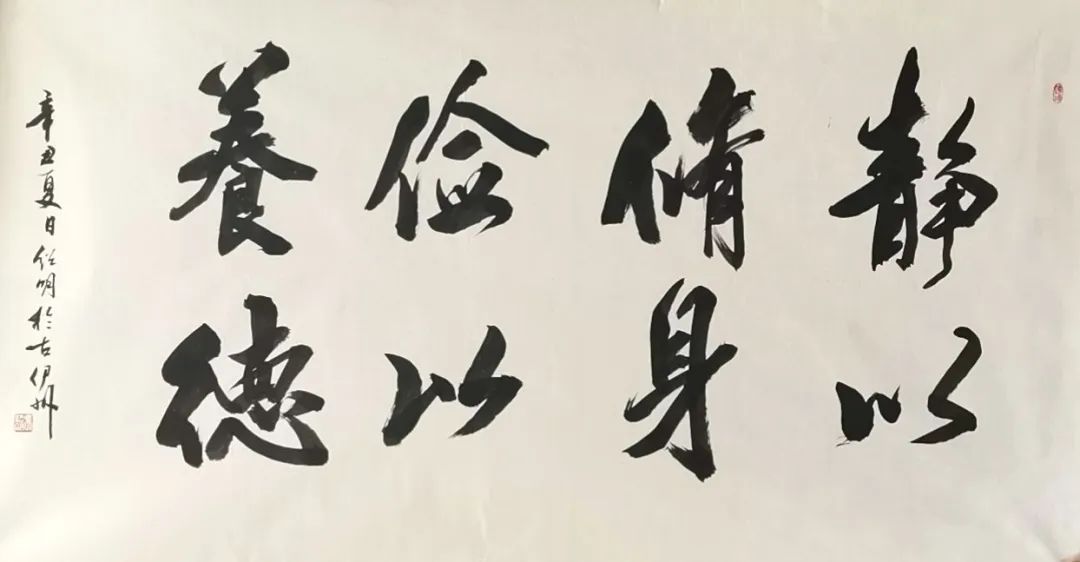 静以
脩身
儉以
養德
辛丑夏日任明於古伊州